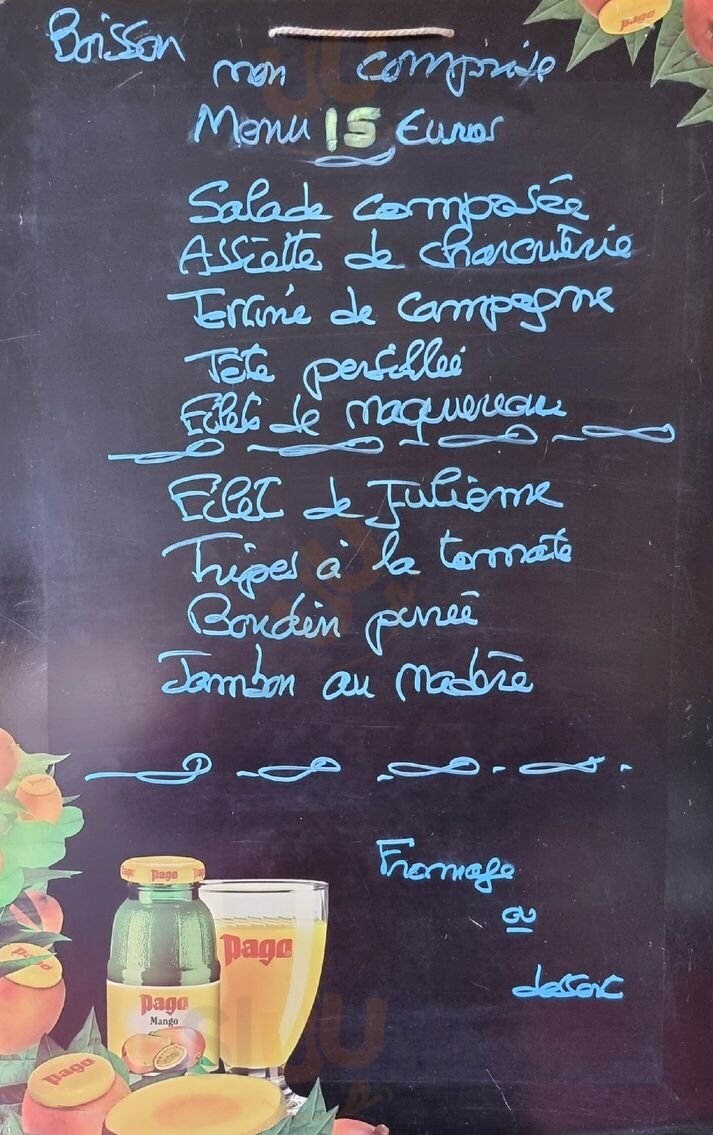 Boisson
non comprise
Menu 15 Euros
Salade composée
Assiette de charcuterie
Terrine de campagne
Tête persillée
Filet de maquereau
Filet de Julienne
Tripes à la tomate
Boudin purée
Jambon au Madère
Fromage
ou
dessert
pago
pago
pago
Pago
Mango
pago
pago